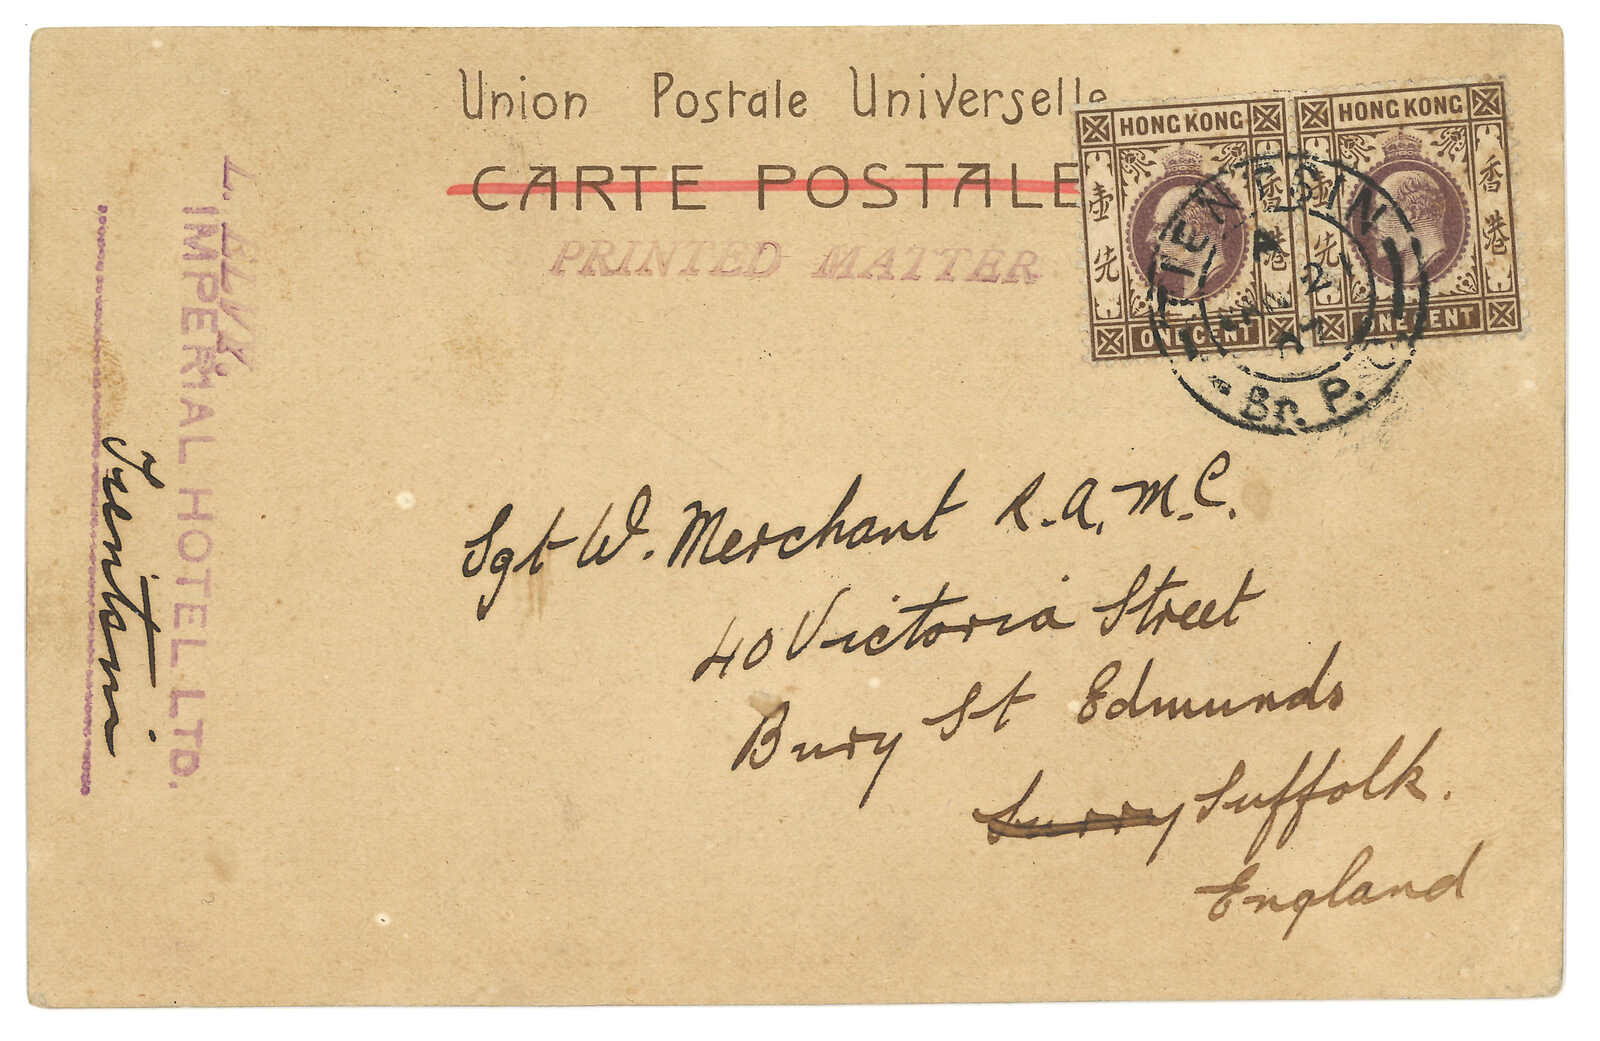 Union Postale Universelle
CARTE POSTALE
PRINTED MATTER
HONG KONG
壹先
香港
ONE CENT
HONG KONG
壹先
香港
ONE CENT
TIENTSIN
A
2
07
Br. P. O.
IMPERIAL HOTEL LTD.
Tientsin
Sgt W. Merchant R.A.M.C.
40 Victoria Street
Bury St Edmunds
Surry Suffolk.
England